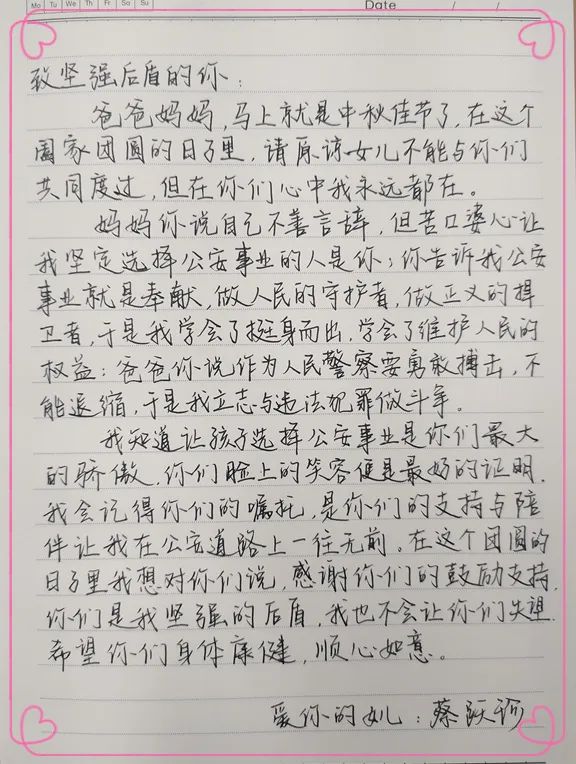 Mo Tu We Th Fr Sa Su
Date / /
致坚强后盾的你：
爸爸妈妈，马上就是中秋佳节了，在这个
阖家团圆的日子里，请原谅女儿不能与你们
共同度过，但在你们心中我永远都在。
妈妈你说自己不善言辞，但苦口婆心让
我坚定选择公安事业的人是你；你告诉我公安
事业就是奉献，做人民的守护者，做正义的捍
卫者，于是我学会了挺身而出，学会了维护人民的
权益；爸爸你说作为人民警察要勇敢搏击，不
能退缩，于是我立志与违法犯罪做斗争。
我知道让孩子选择公安事业是你们最大
的骄傲，你们脸上的笑容便是最好的证明，
我会记得你们的嘱托，是你们的支持与陪
伴让我在公安道路上一往无前。在这个团圆的
日子里我想对你们说，感谢你们的鼓励支持，
你们是我坚强的后盾，我也不会让你们失望，
希望你们身体康健，顺心如意。
爱你的女儿：蔡跃